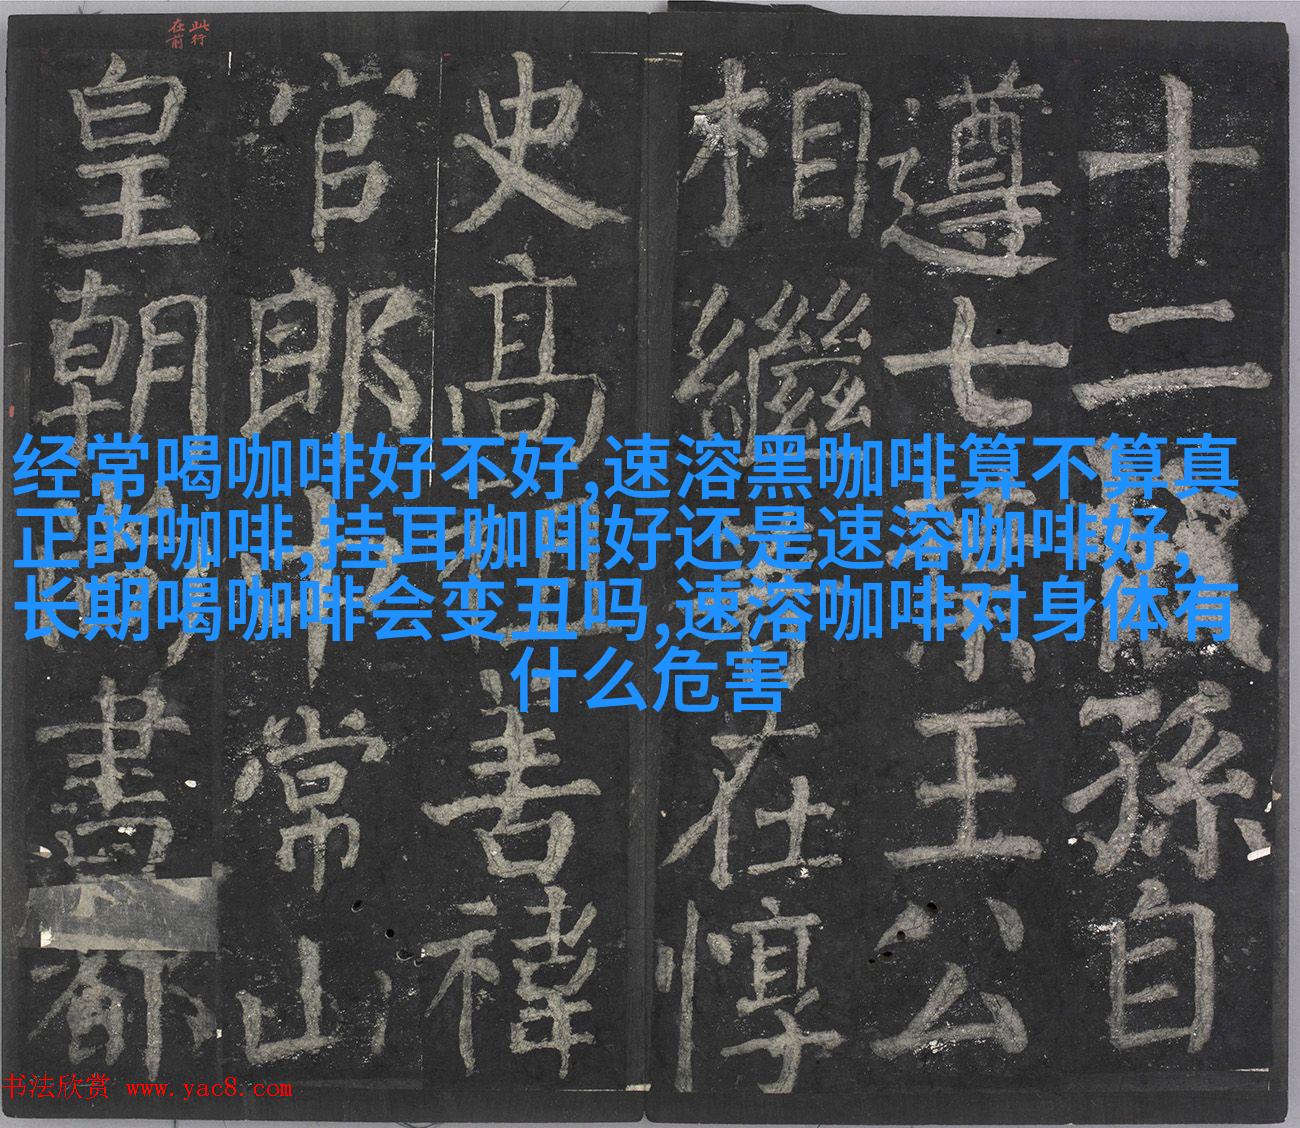 此行
在前
十二孫自
遵七王公
相繼在惇
史高善禕
官郎中常山
皇朝都
经常喝咖啡好不好,速溶黑咖啡算不算真
正的咖啡,挂耳咖啡好还是速溶咖啡好,
长期喝咖啡会变丑吗,速溶咖啡对身体有
什么危害
书法欣赏 www.yac8.com